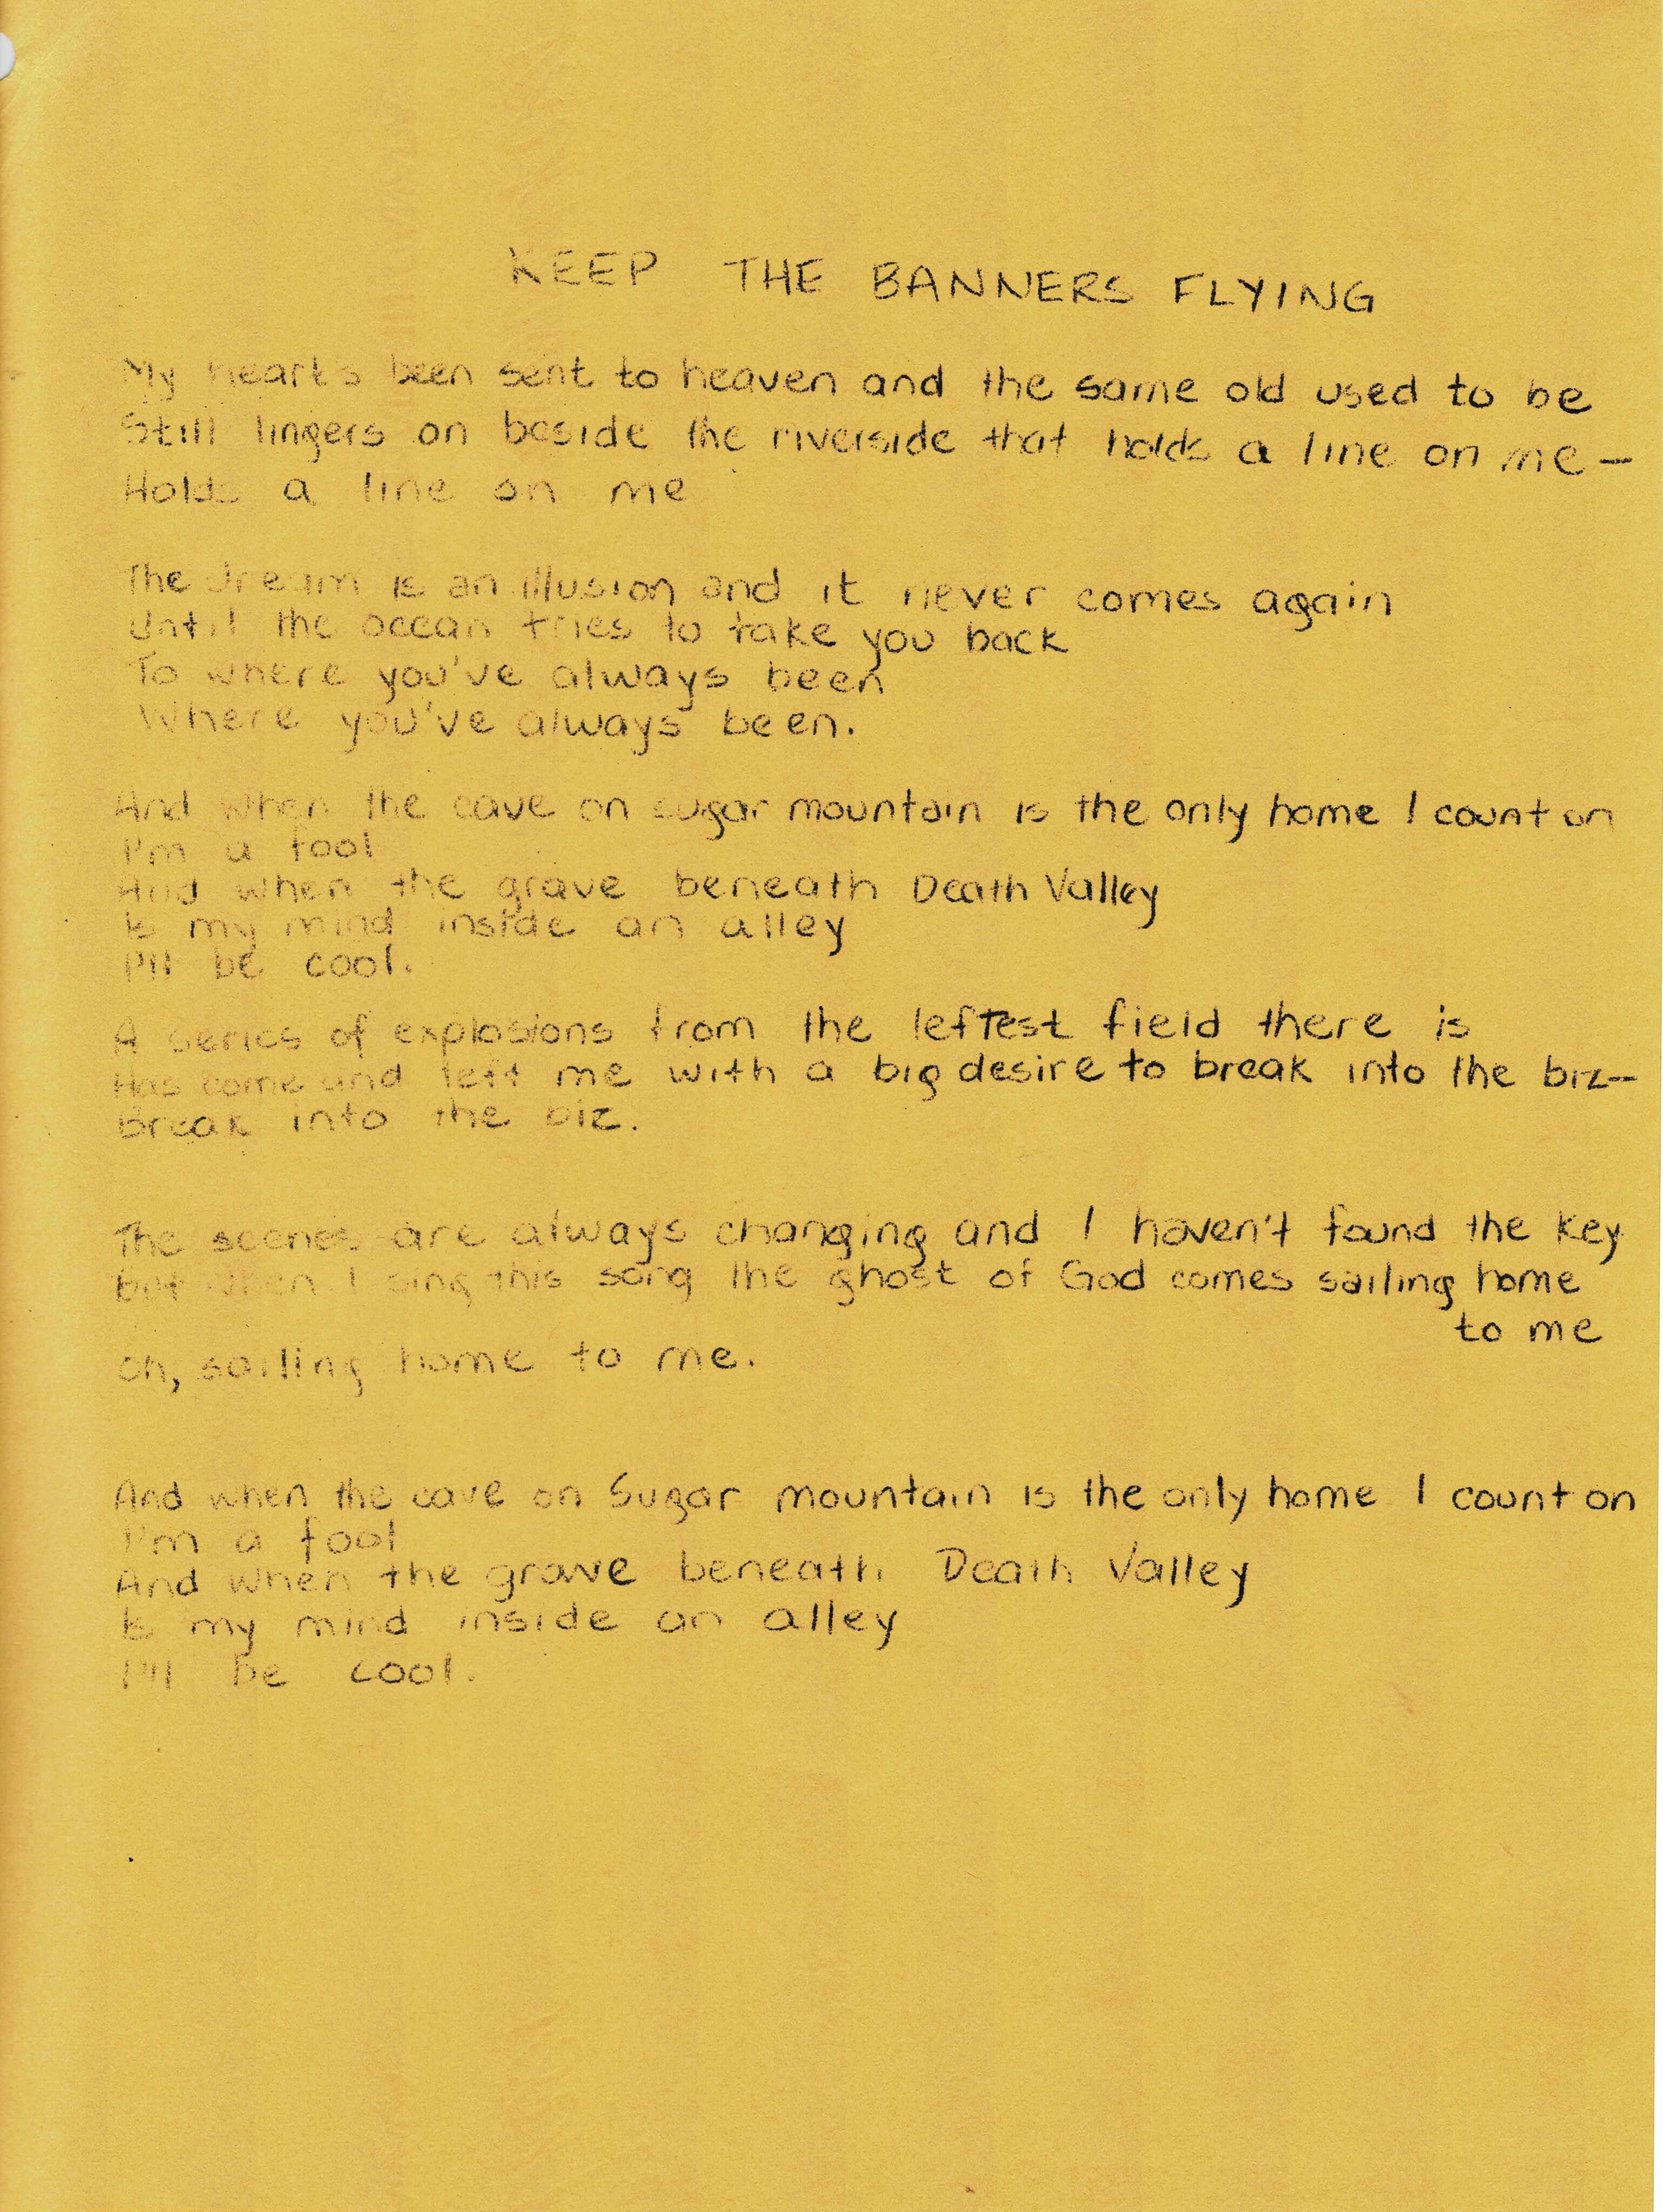 KEEP THE BANNERS FLYING
My heart's been sent to heaven and the same old used to be
Still lingers on beside the riverside that holds a line on me—
Holds a line on me
The dream is an illusion and it never comes again
Until the ocean tries to take you back
To where you've always been
Where you've always been.
And when the cave on sugar mountain is the only home I count on
I'm a fool
And when the grave beneath Death Valley
Is my mind inside an alley
I'll be cool.
A series of explosions from the leftest field there is
Has come and left me with a big desire to break into the biz—
Break into the biz.
The scenes are always changing and I haven't found the key
but when I sing this song the ghost of God comes sailing home
to me
oh, sailing home to me.
And when the cave on Sugar mountain is the only home I count on
I'm a fool
And when the grave beneath Death Valley
Is my mind inside an alley
I'll be cool.